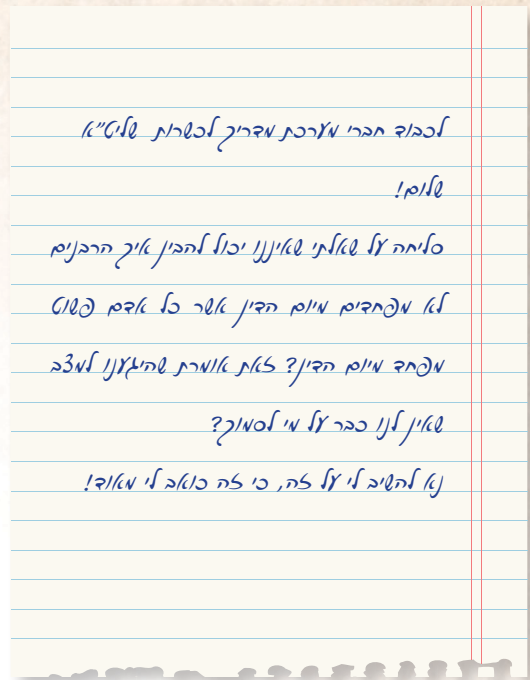 לכבוד חברי מערכת מדריך לכשרות שליט"א
שלום!
סליחה על שאלתי שאינני יכול להבין איך הרבנים
לא מפחדים מיום הדין אשר כל אדם פשוט
מפחד מיום הדין? זאת אומרת שהיגענו למצב
שאין לנו כבר על מי לסמוך?
נא להשיב לי על זה, כי זה כואב לי מאוד!